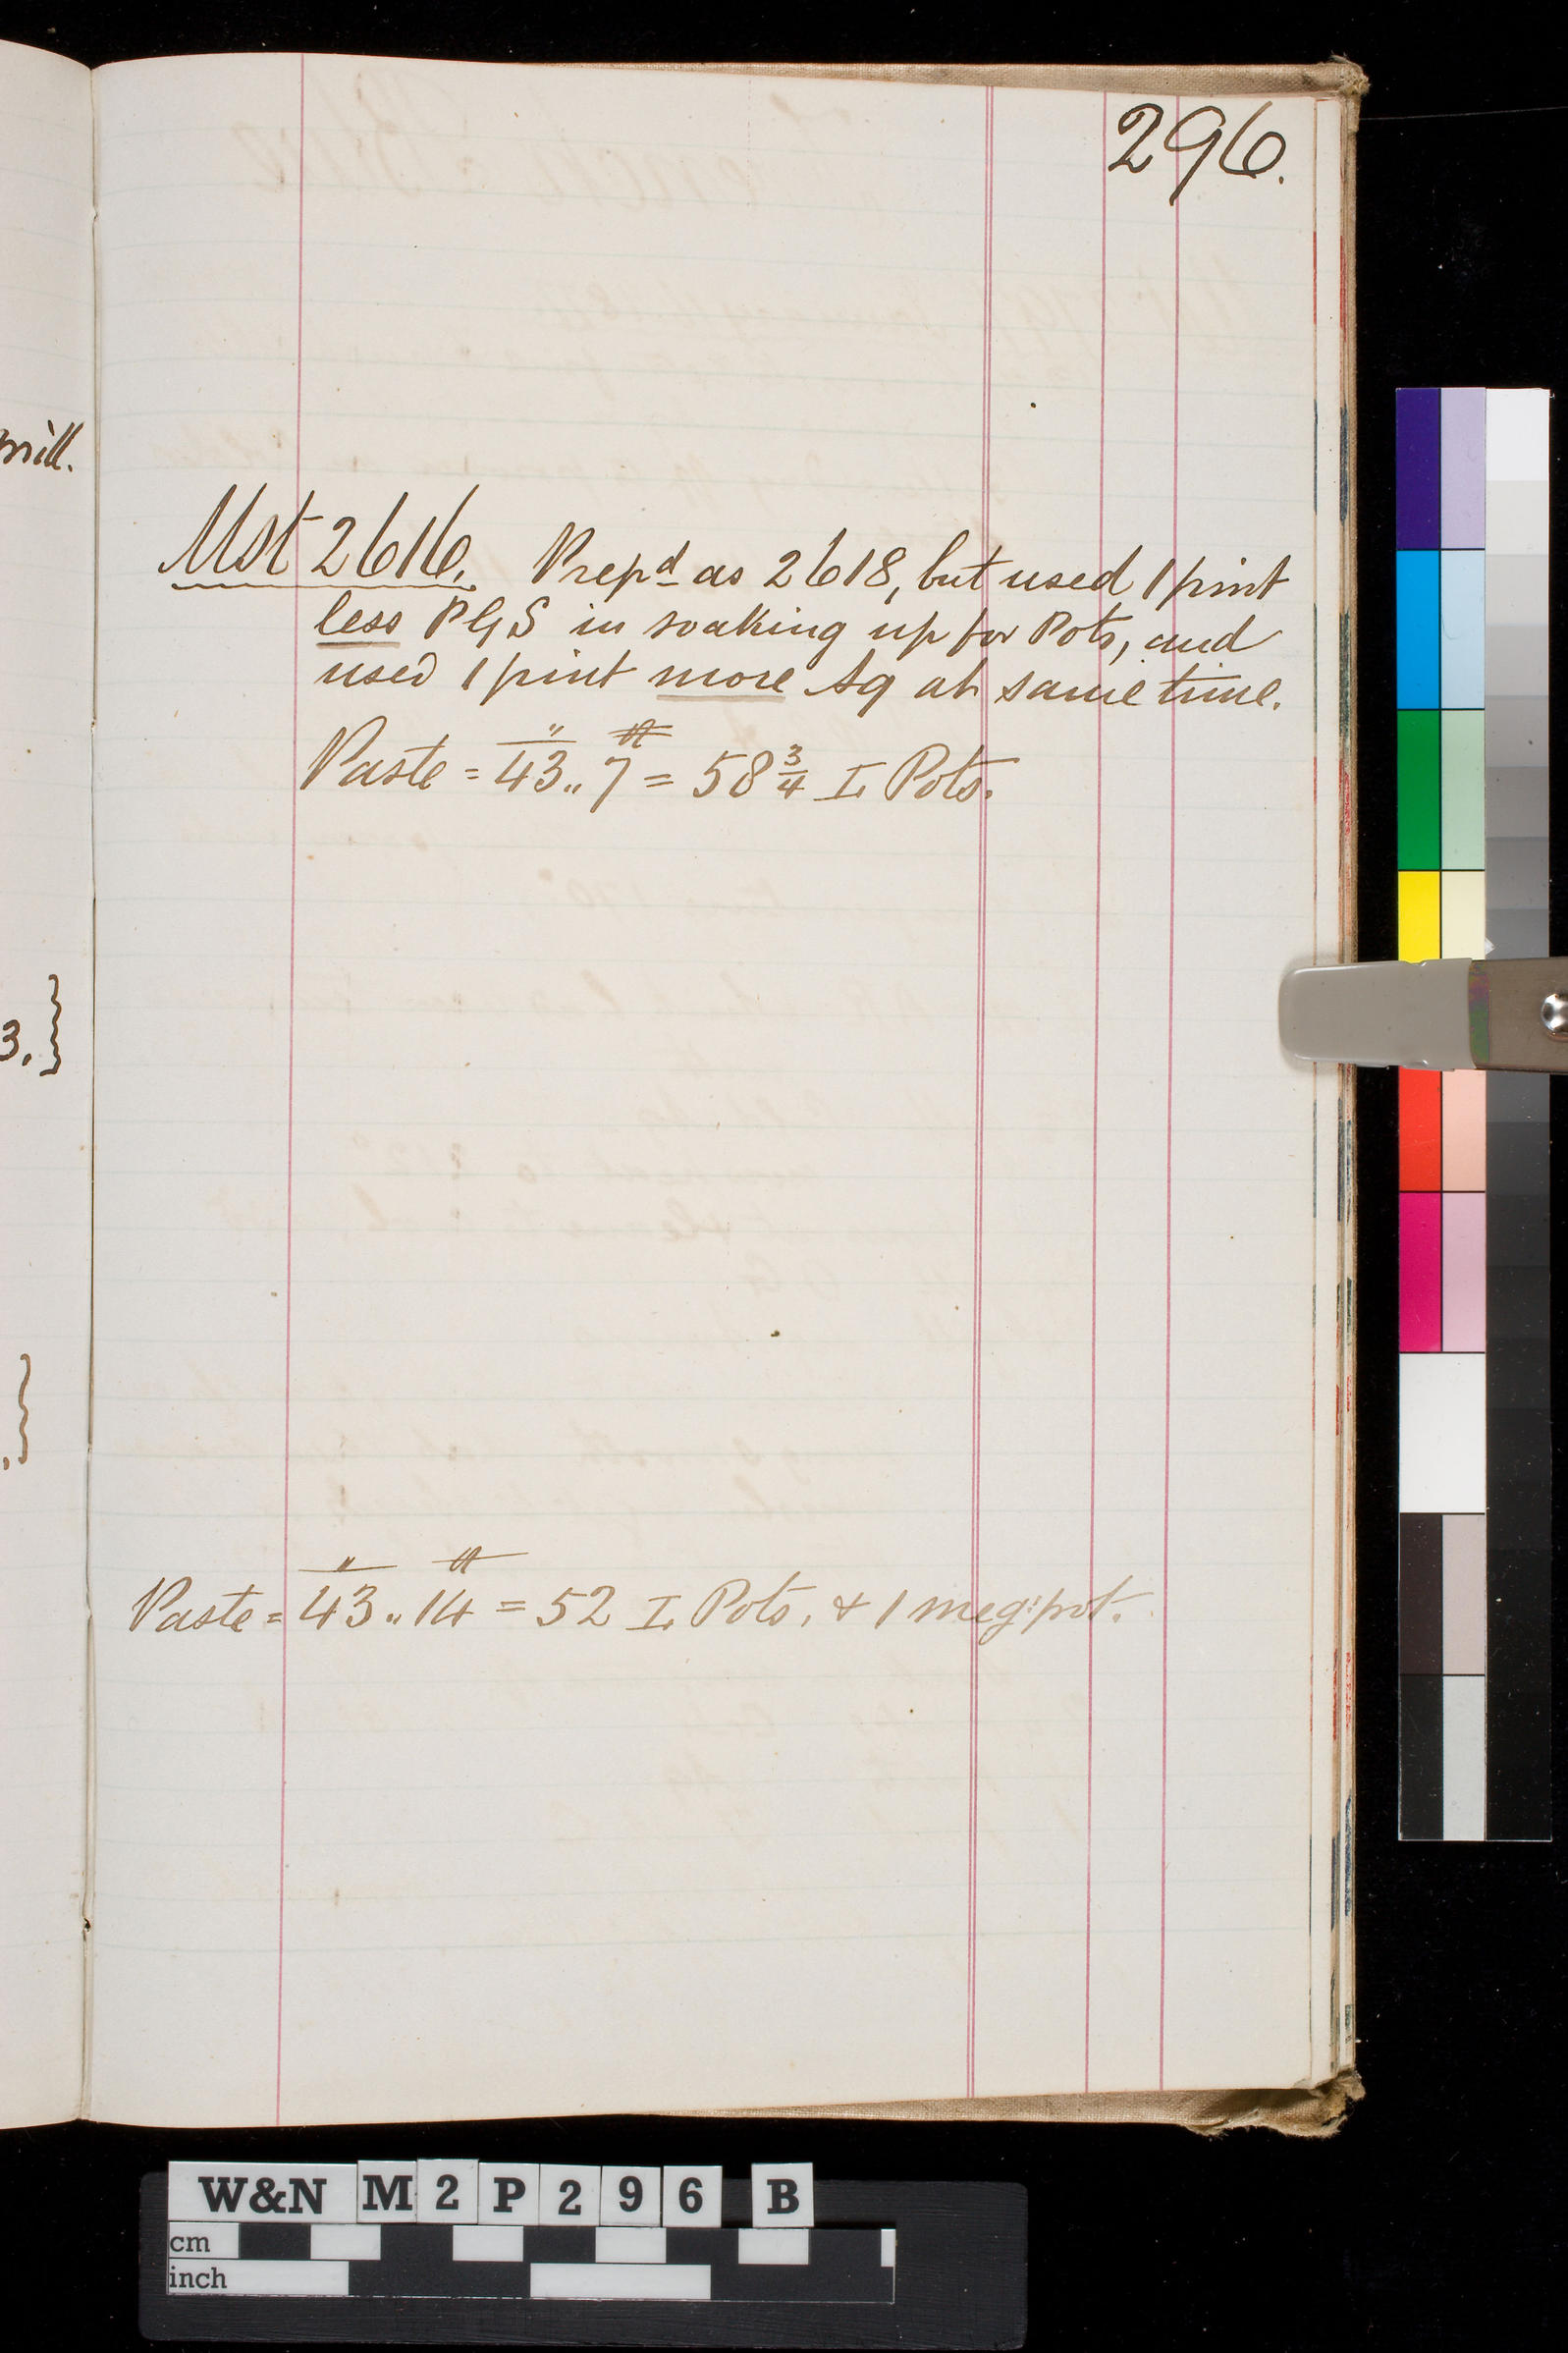 296.
mill.
Mst 2616. Prepd as 2618, but used 1 pint
less PGS in soaking up for Pots, and
used 1 pint more Aq at same time.
Paste = 43 .. 7 = 58 3/4 I. Pots.
3.
Paste = 43 .. 14 = 52 I. Pots. & 1 meg: pot.
W&N M2P296 B
cm
inch